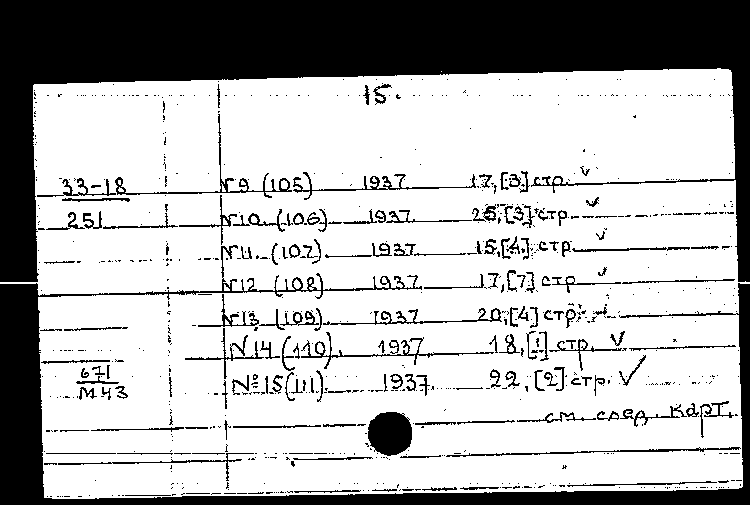 15.
33-18 №9 (105) 1937 17,[3] стр. v
251 №10 (106) 1937 25,[3] стр. v
№11 (107). 1937 15,[4] стр. v
№12 (108) 1937 17,[7] стр v
№13 (109) 1937 20,[4] стр.
N14 (110). 1937. 18,[1] стр. V
671 №15 (111). 1937. 22, [2] стр. V
М43
см. след. карт.